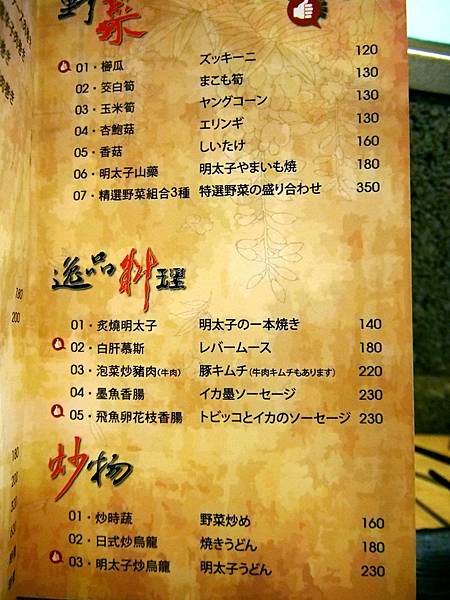 野菜
01・櫛瓜 ズッキーニ 120
02・茭白筍 まこも筍 130
03・玉米筍 ヤングコーン 130
04・杏鮑菇 エリンギ 130
05・香菇 しいたけ 160
06・明太子山藥 明太子やまいも焼 180
07・精選野菜組合3種 特選野菜の盛り合わせ 350
逸品料理
01・炙燒明太子 明太子の一本焼き 140
02・白肝慕斯 レバームース 180
03・泡菜炒豬肉(牛肉) 豚キムチ(牛肉キムチもあります) 220
04・墨魚香腸 イカ墨ソーセージ 230
05・飛魚卵花枝香腸 トビッコとイカのソーセージ 230
炒物
01・炒時蔬 野菜炒め 160
02・日式炒烏龍 焼きうどん 180
03・明太子炒烏龍 明太子うどん 230
180
200
180
200